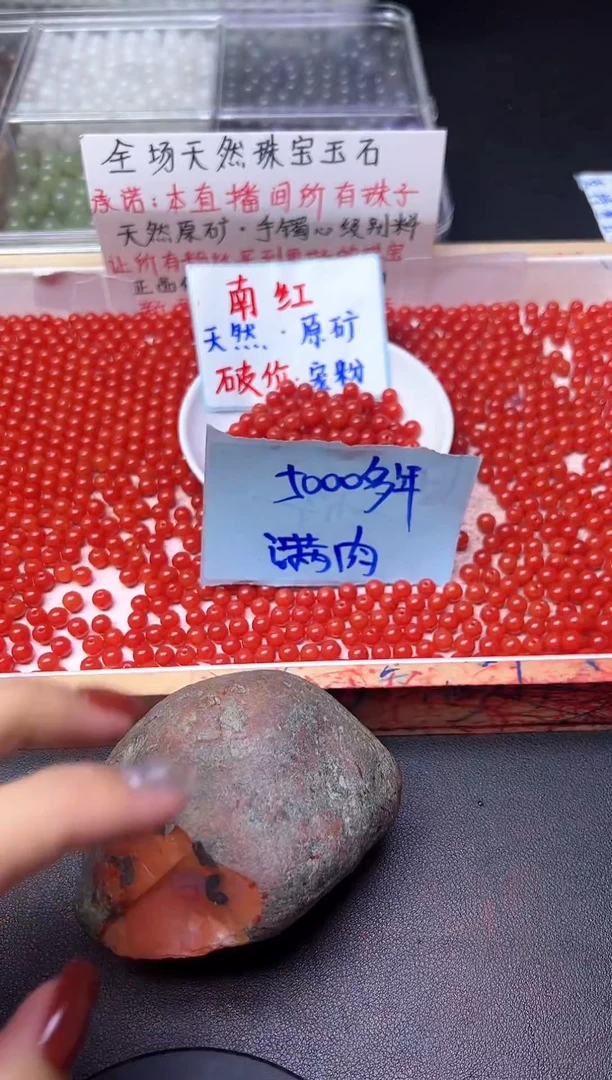 全场天然珠宝玉石
承诺:本直播间所有珠子
天然原矿·手镯心级别料
让所有粉丝买到
正品
南红
天然·原矿
破价·宠粉
5000多年
满肉